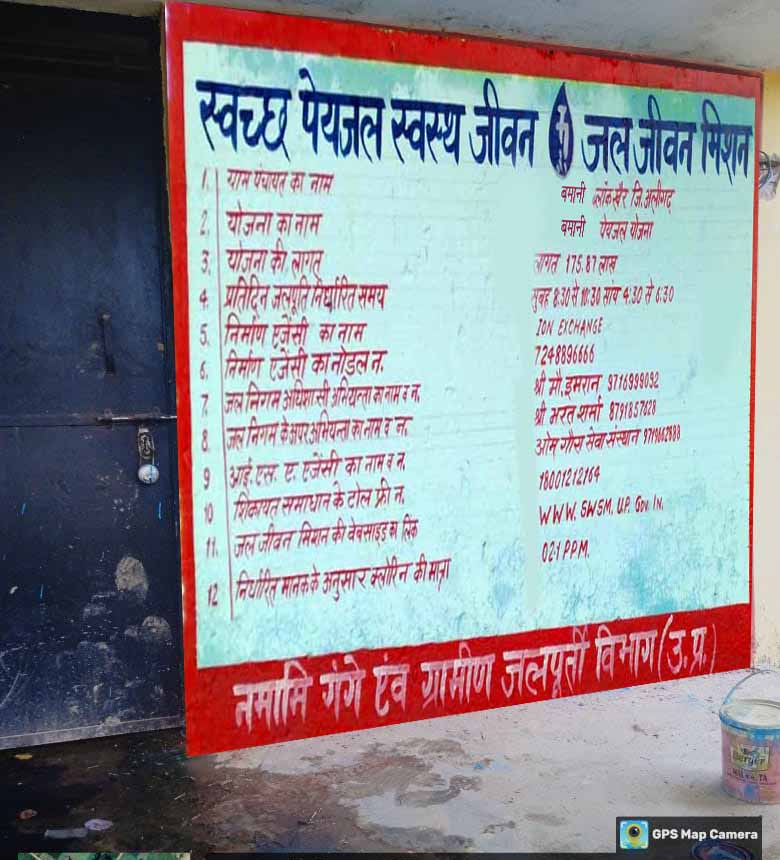 स्वच्छ पेयजल स्वस्थ जीवन जल जीवन मिशन
1. ग्राम पंचायत का नाम बमानी ब्लॉक खैर जि. अलीगढ़
2. योजना का नाम बमानी पेयजल योजना
3. योजना की लागत लागत 175.87 लाख
4. प्रतिदिन जलपूर्ति निर्धारित समय सुबह 8:30 से 10:30 सांय 4:30 से 6:30
5. निर्माण एजेंसी का नाम ION EXCHANGE
6. निर्माण एजेंसी का नोडल न. 7248896666
7. जल निगम अधिशासी अभियन्ता का नाम व न. श्री मौ. इमरान 9716999092
8. जल निगम के अपर अभियन्ता का नाम व न. श्री भरत शर्मा 8791857828
9 आई. एस. ए. एजेंसी का नाम व न. ओम गौरा सेवा संस्थान
10 शिकायत समाधान के टोल फ्री न. 18001212164
11. जल जीवन मिशन की वेबसाइड का लिंक WWW. SWSM. U.P. Gov. In.
12 निर्धारित मानक के अनुसार क्लोरिन की मात्रा 02.1 PPM.
नमामि गंगे एंव ग्रामीण जलपूर्ती विभाग (उ.प्र.)
GPS Map Camera